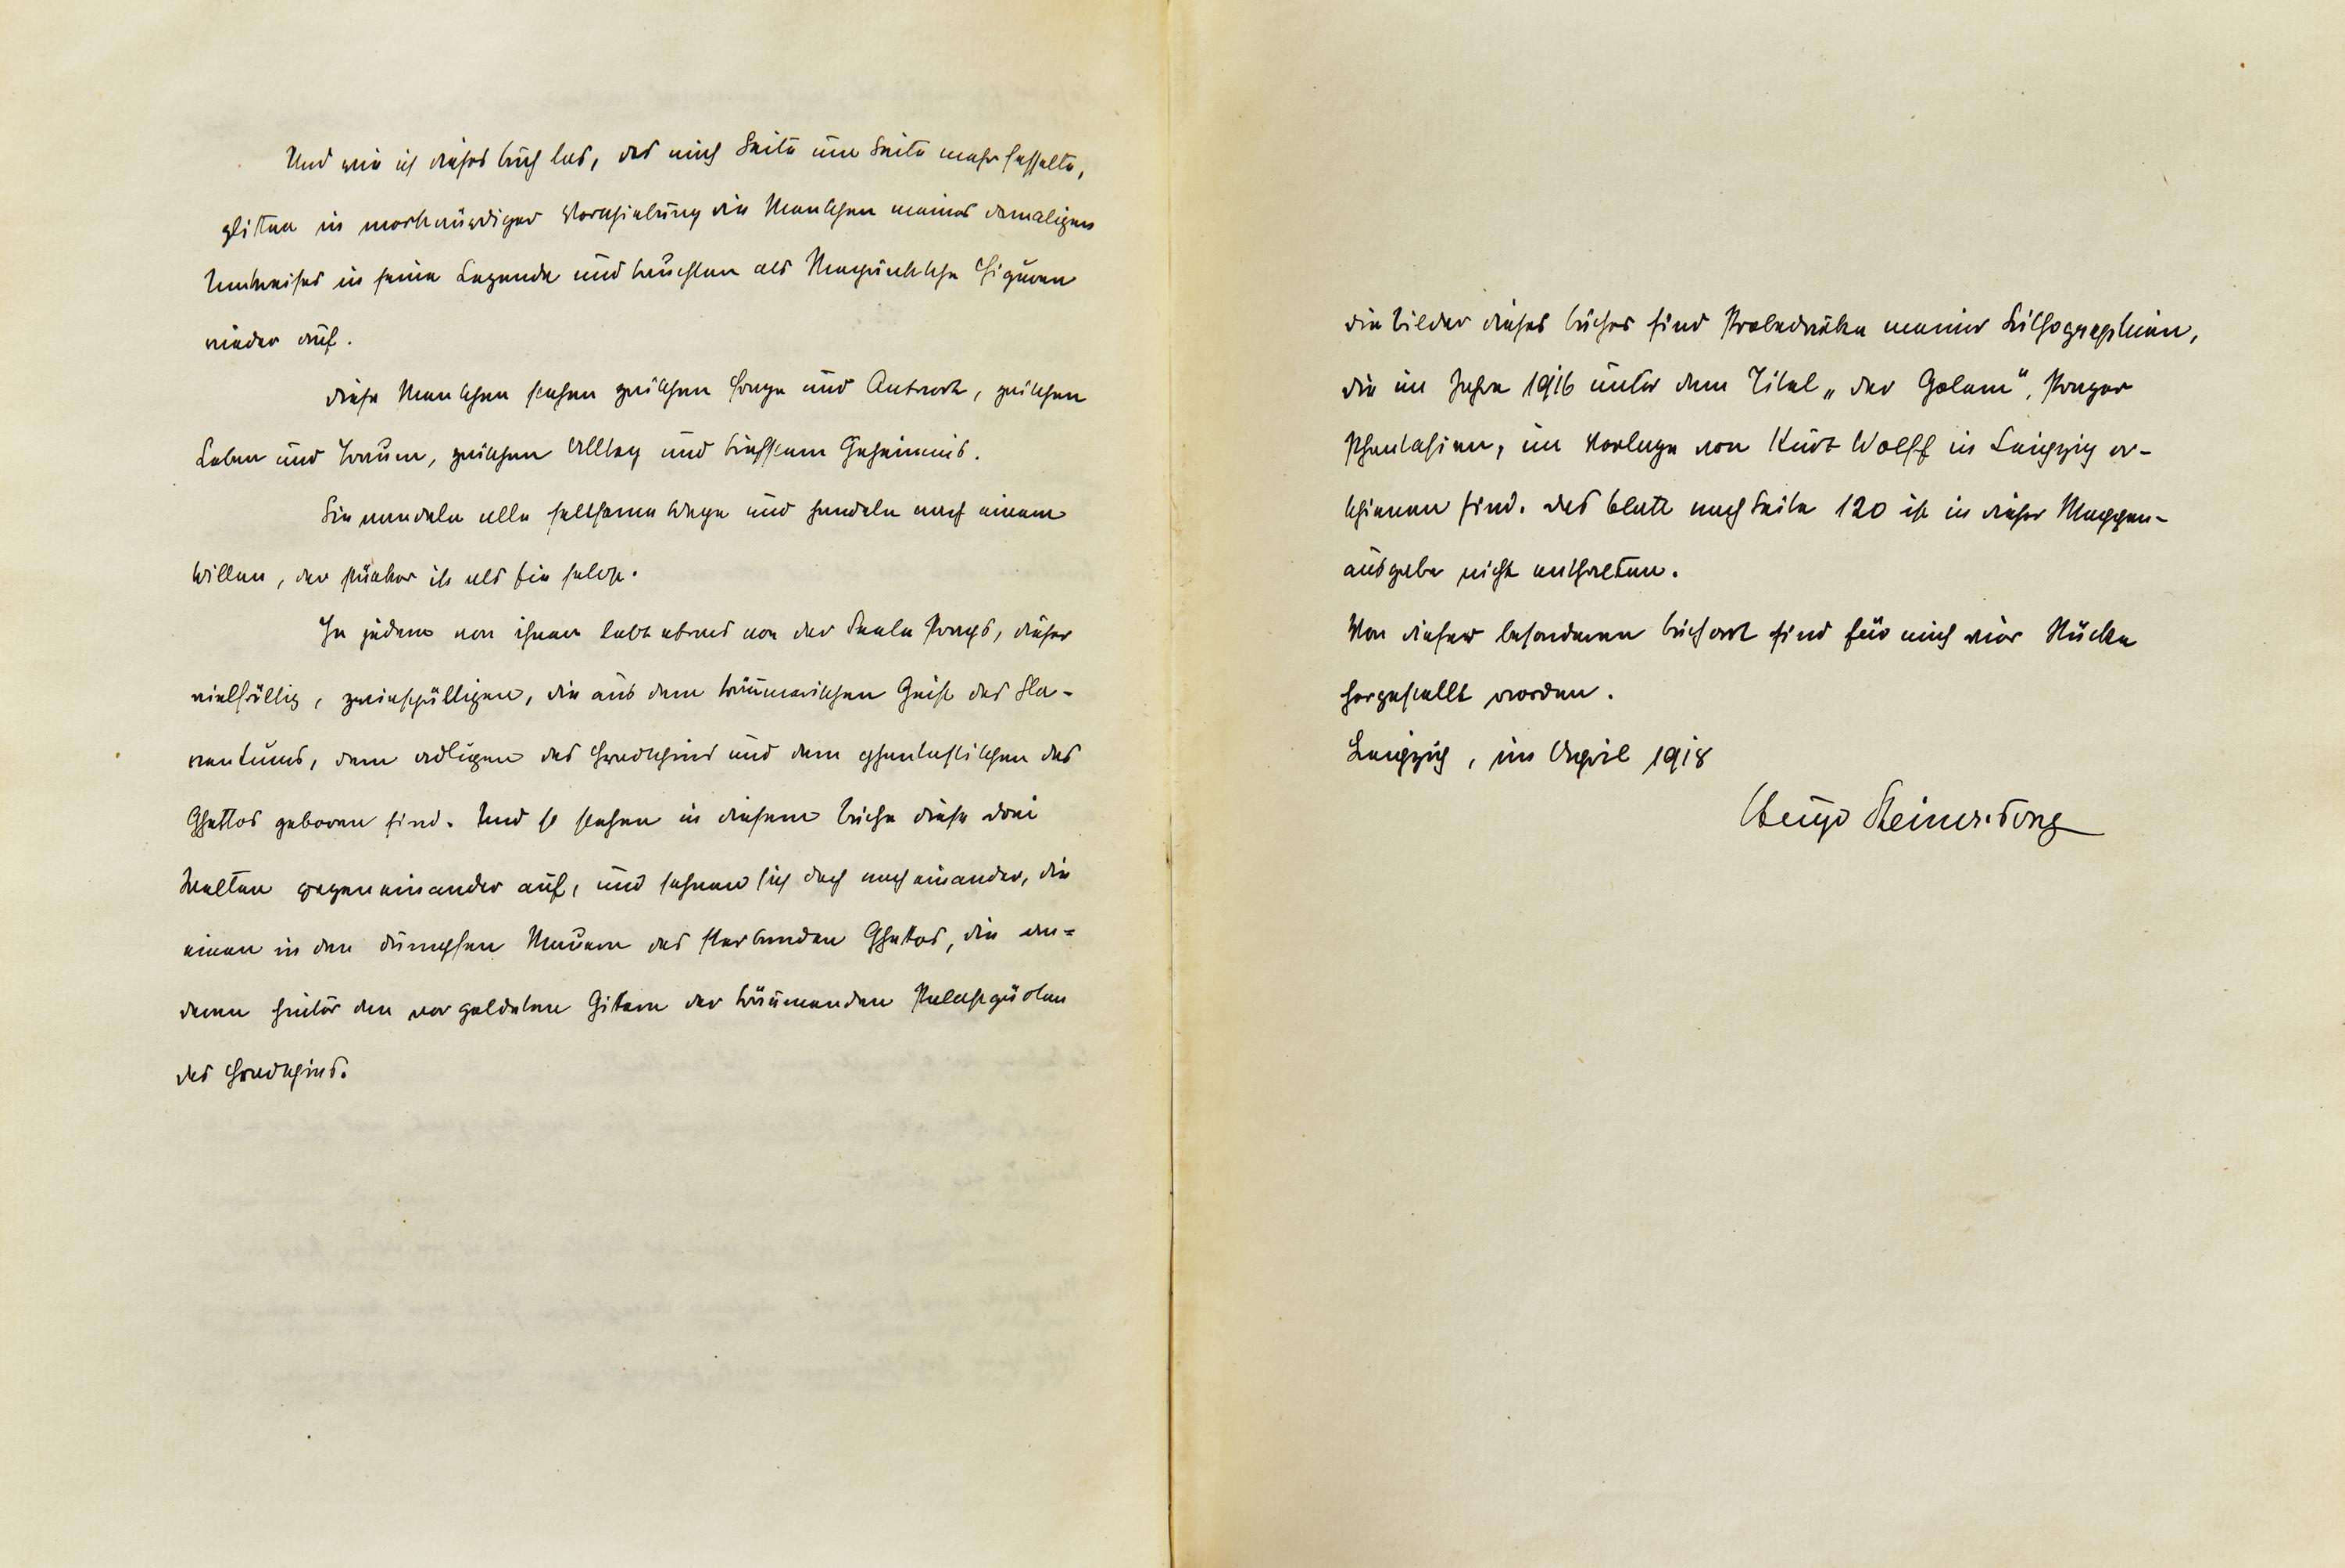 Und wie ich dieses Buch las, das mich Seite um Seite mehr fesselte,
glitten in merkwürdiger Verschiebung die Menschen meines damaligen
Umkreises in seine Legende und tauchten als Meyrinksche Figuren
wieder auf.
Diese Menschen stehen zwischen Frage und Antwort, zwischen
Leben und Traum, zwischen Alltag und tiefstem Geheimnis.
Sie wandeln alle seltsame Wege und handeln nach einem
Willen, der stärker ist als sie selbst.
In jedem von ihnen lebt etwas von der Seele Prags, dieser
vielfältig, zwiespältigen, die aus dem träumerischen Geist des Sla-
wentums, dem adligen des Hradschins und dem phantastischen des
Ghettos geboren sind. Und so stehen in diesem Buche diese drei
Welten gegeneinander auf, und sehnen sich doch nach einander, die
einen in den dumpfen Mauern des sterbenden Ghettos, die an=
deren hinter den vergoldeten Gittern der träumenden Palastgärten
des Hradschins.
Die Bilder dieses Buches sind Probedrucke meiner Lithographien,
die im Jahre 1916 unter dem Titel „Der Golem", Prager
Phantasien, im Verlage von Kurt Wolff in Leipzig er-
schienen sind. Das Blatt nach Seite 120 ist in dieser Mappen-
ausgabe nicht enthalten.
Von dieser besonderen Buchart sind für mich vier Stücke
hergestellt worden.
Leipzig, im April 1918
Hugo Steiner-Prag